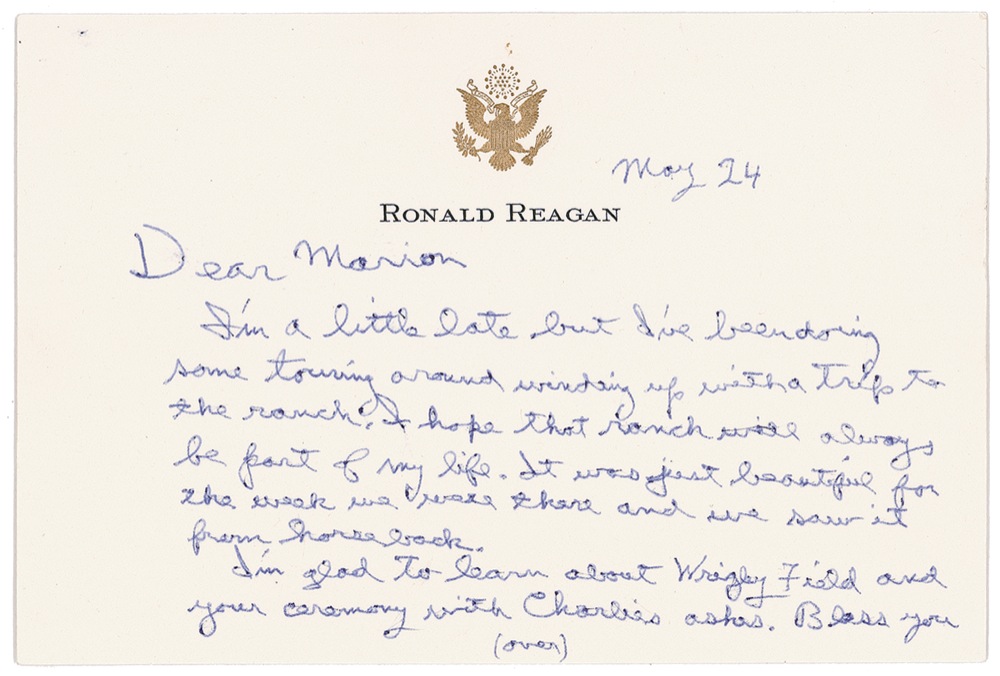 May 24
RONALD REAGAN
Dear Marion
I'm a little late but I've been doing
some touring around winding up with a trip to
the ranch. I hope that ranch will always
be part of my life. It was just beautiful for
the week we were there and we saw it
from horseback.
I'm glad to learn about Wrigley Field and
your ceremony with Charlies ashes. Bless you
(over)